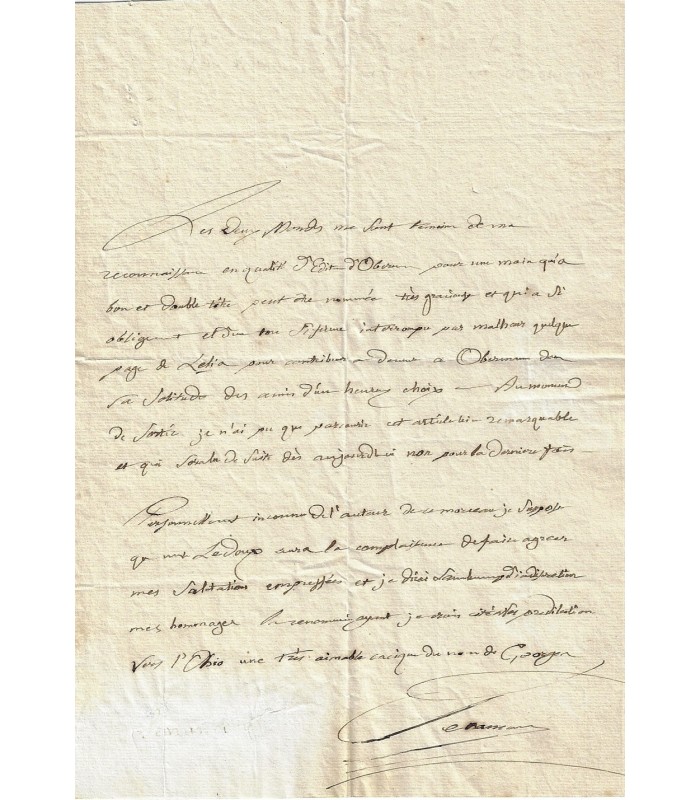 Les Deux Mondes me sont témoin de ma
reconnaissance en qualité d'Edit d'Oberman pour une main qui a
bon et double titre peut être nommée très gracieuse et qui a si
obligeant et d'un ton si ferme interrompu par malheur quelque
page de Lelia pour contribuer a donner a Oberman dans
sa solitude des amis d'un heureux choix — Au moment
de sortir je n'ai pu que parcourir cet article bien remarquable
et qui sera lu de suite dès aujourd'hui non pour la dernière fois —
Personnellement inconnu de l'auteur de ce morceau je suppose
que Ledoux aura la complaisance de faire agréer
mes salutations empressées et je dirai
mes hommages la je crois
vers l'Ohio une très aimable cacique du nom de George
Senancour